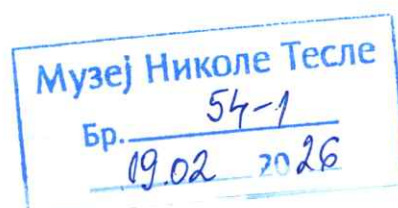 Музеј Николе Тесле
Бр. 54-1
19.02 2026